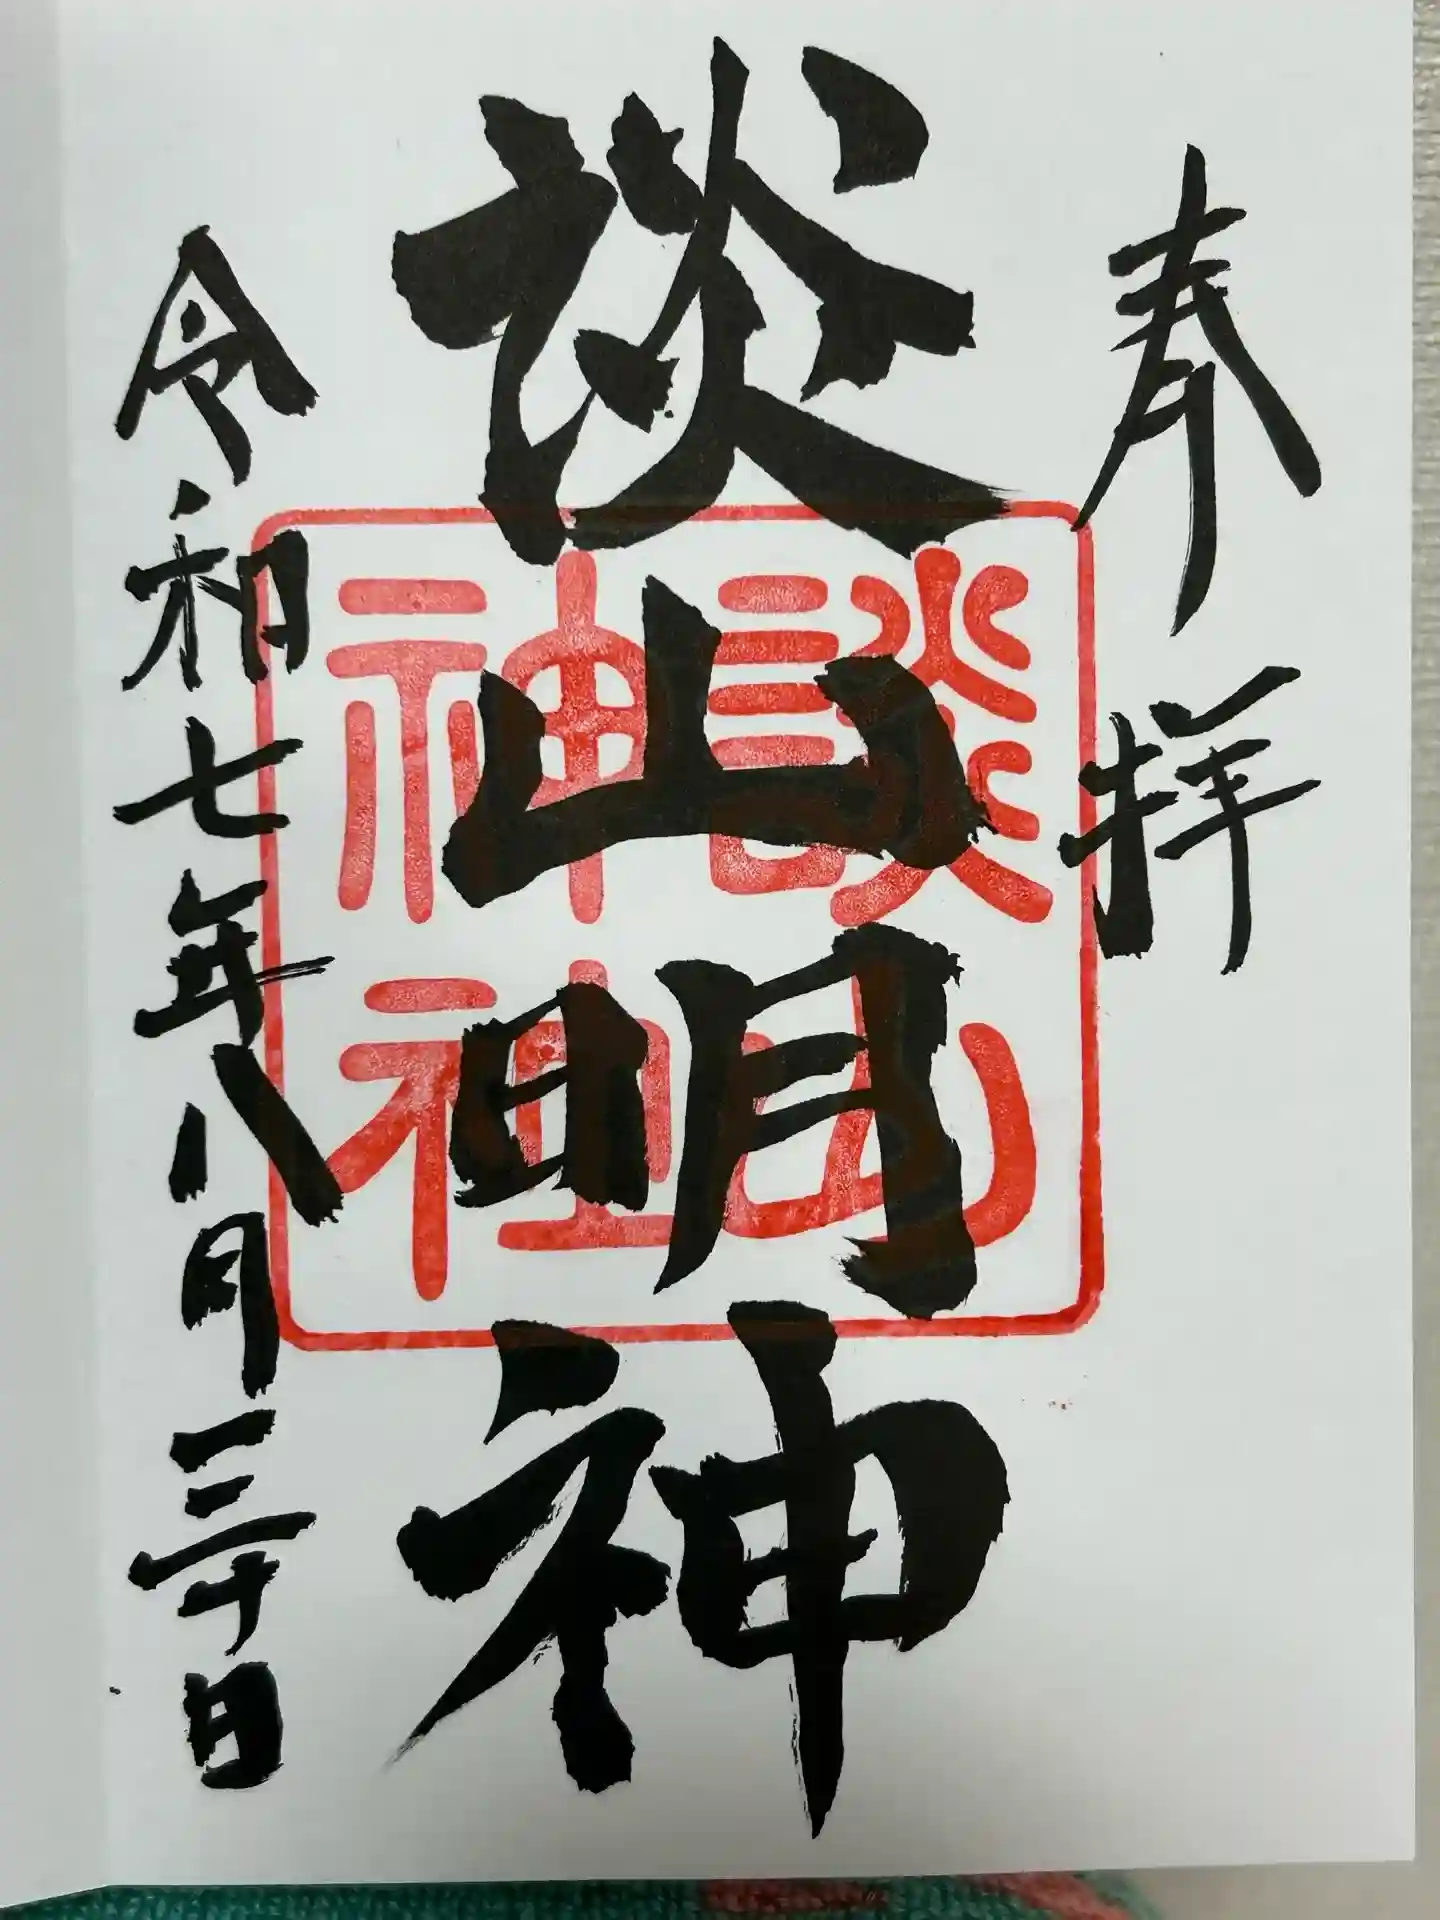 奉拝
談山明神
談山
神社
令和七年八月三十日